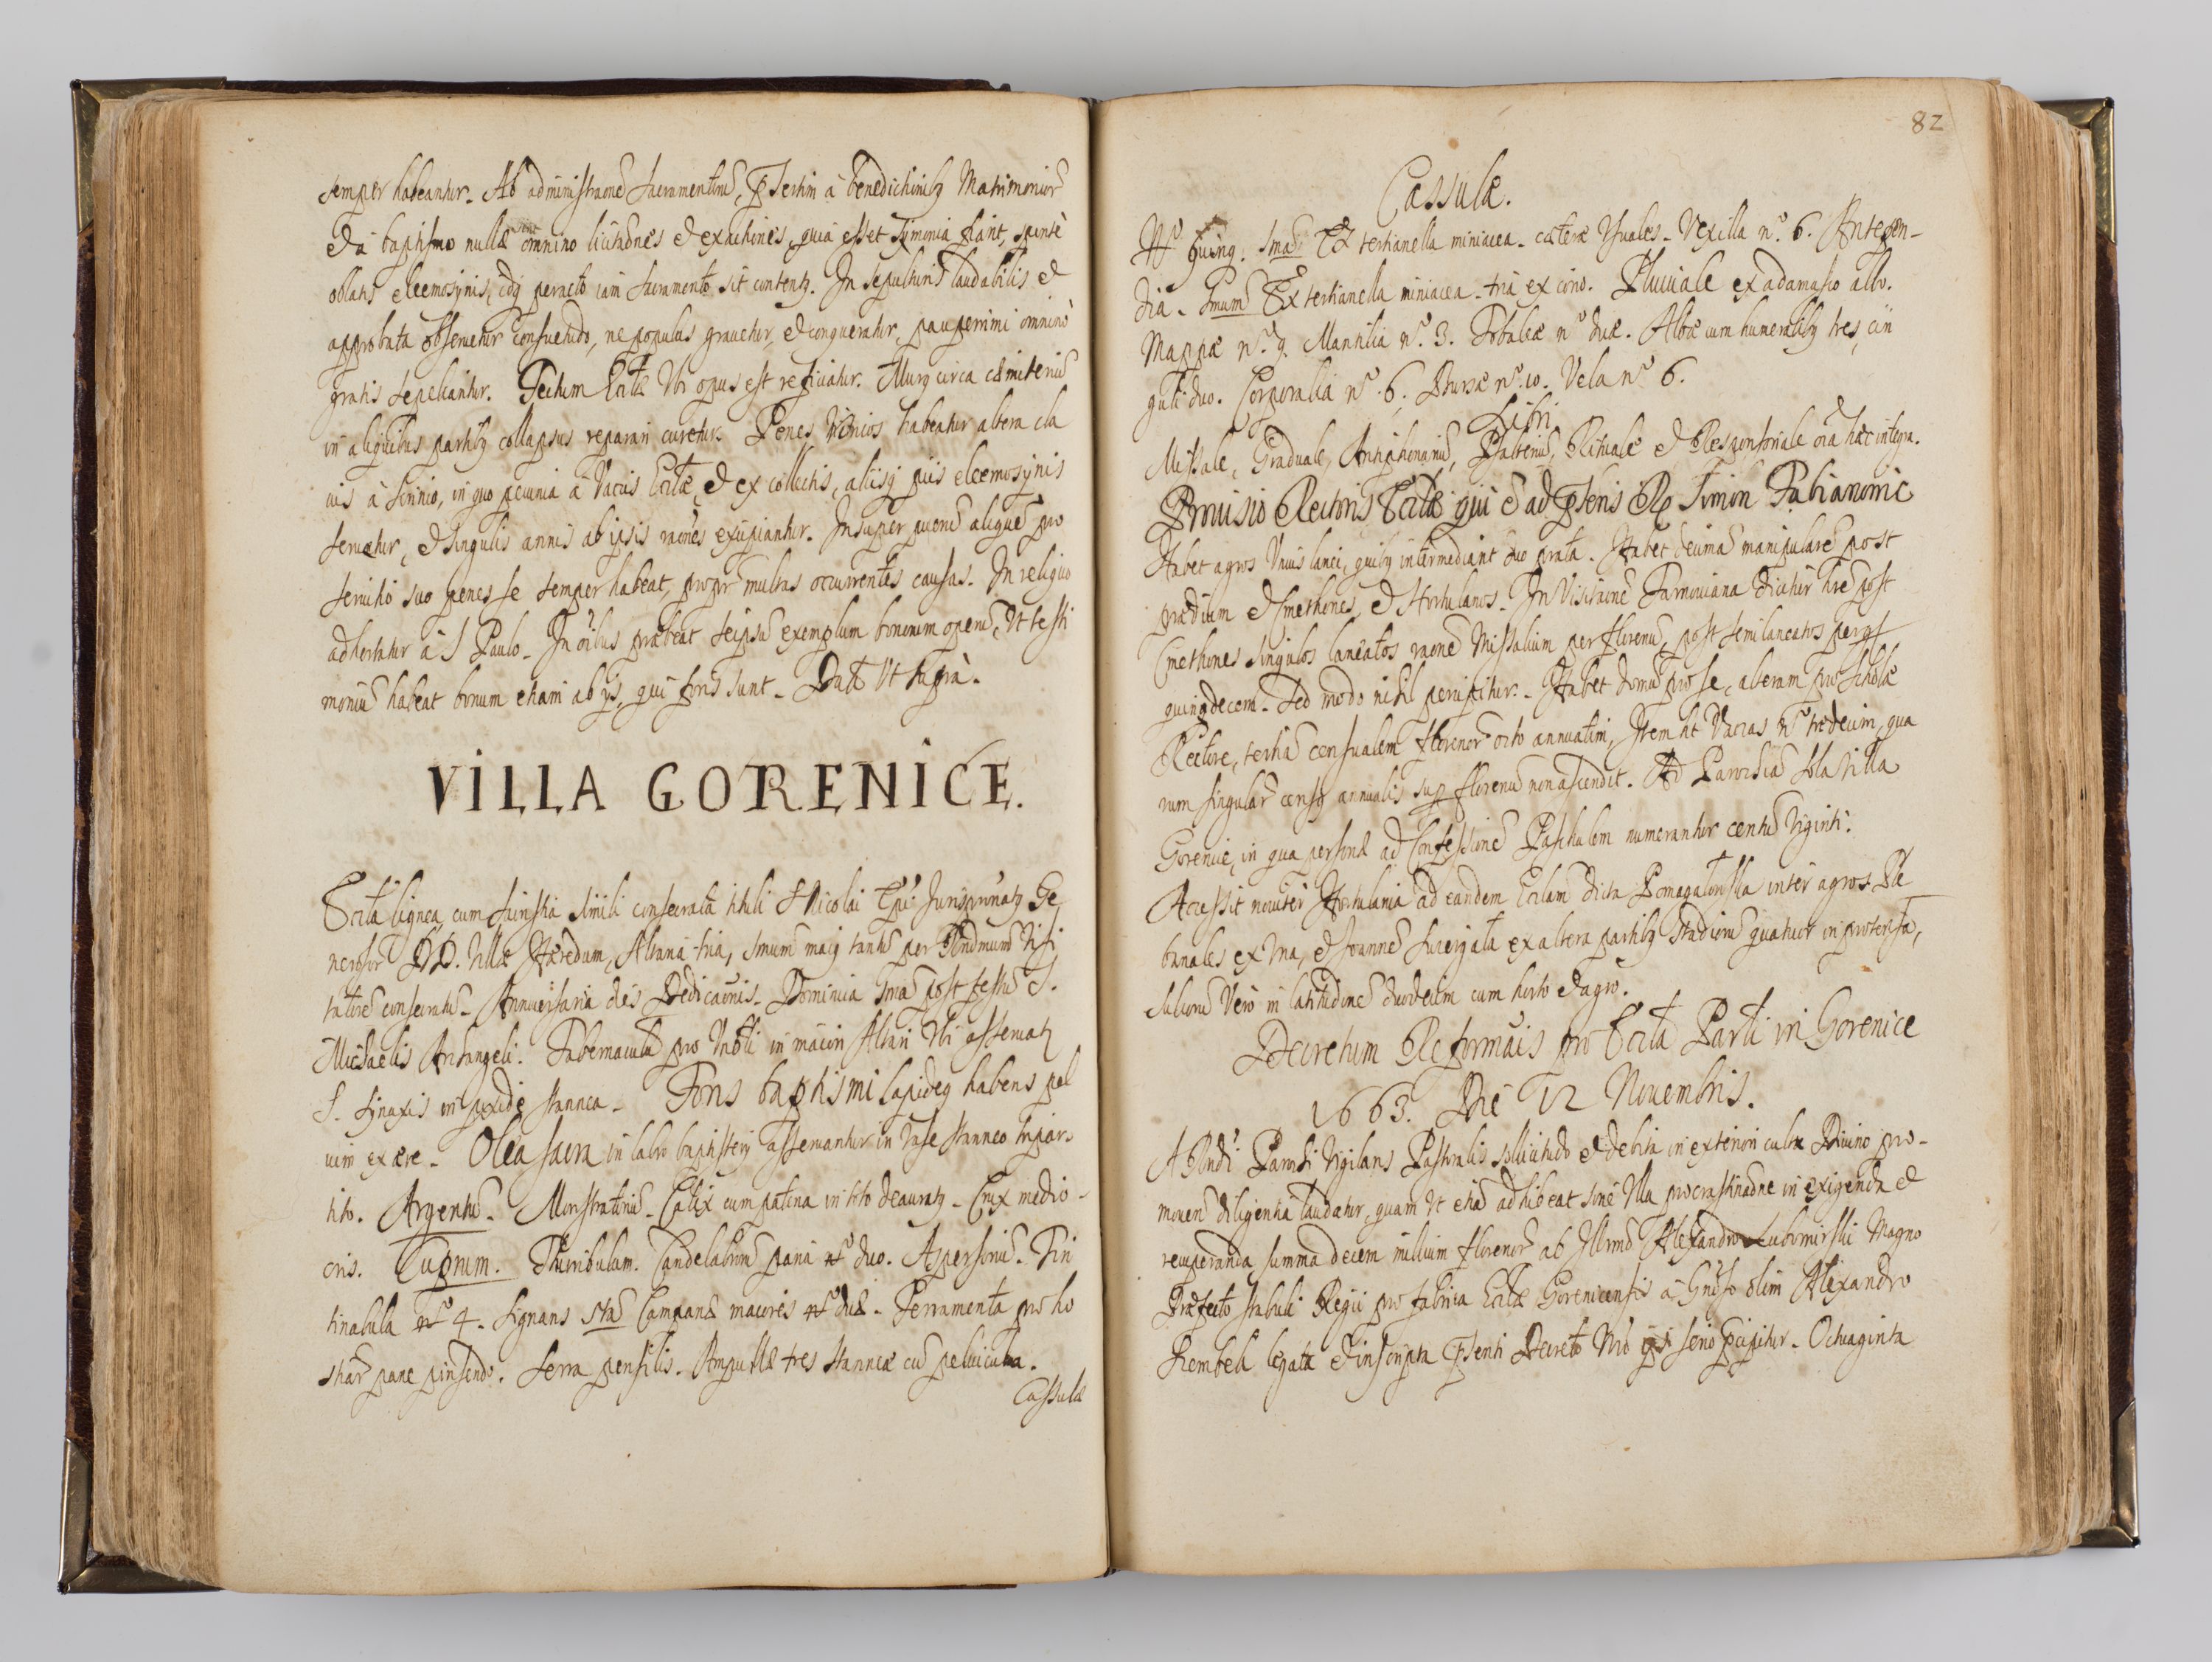 semper habeantur. Ab administraone Sacramentorũ, p̃sertim à benedictionibq Matrimoniorũ
et à baptismo nullæ sint omnino licitaõnes et exactiones, quia esset symonia fiant, spontè
oblatis eleemosynis, idq peracto iam Sacramento sit contentq. In sepulturis laudabilis et
approbata obseruetur consuetudo, ne populus grauetur, et conqueratur, pauperrimi omninò
gratis sepeliantur. Tectum Ecclæ Vbi opus est reficiatur. Murq circa cæmiteriũ
in aliquibus partibq collapsus reparari curetur. Penes Vitricos habeatur altera cla
uis à scrinio, in quo pecunia à Vaccis Ecclæ, et ex collectis, aliisq piis eleemosynis
seruetur, et singulis annis ab ipsis raões exipiantur. Insuper puerũ aliquẽ pro
seruitio suo penes se semper habeat, proptr multas occurrentes causas. In reliquo
adhortatur à S Paulo. In oĩbus præbeat seipsũ exemplum bonorum operũ, Vt testi
moniũ habeat bonum etiam ab ys, qui foris sunt. Datt Vt suprà.
VILLA GORENICE.
Eccla lignea, cum Sacristia simili consecrata tituli S Nicolai Epi. Jurispatronatq Ge,
nerosor DD. Villæ Hæredum, Altaria tria, smum maiq tantũ per Rndmum Visi
tatorẽ consecratũ. Anniuersaria dies Dedicaõnis. Dominica Ima post festũ S.
Michaelis Archangeli. Tabernaculũ pro Vnbli in maiori Altari Vbi asseruatq
S. Synaxis in pixide stannea. Fons baptismi lapideq habens pel
uim ex ære. Olea sacra in labro baptistery asseruantur in Vase stanneo tripar.
tito. Argentũ. Monstratoriũ. Calix cum patina in toto deauratq. Crux medio-
cris. Cuprum. Thuribulum. Candelabrorũ paria nro duo. Aspersoriũ. Tin
tinabula nro 4. Signans sta Campanæ maiores nro duæ. Ferramenta pro ho
stiar pane pinsendo. Serra pensilis. Ampullæ tres stanneæ cũ peluicula.
Cassulæ
82
Cassulæ.
Nro quinq. Sma Ex tertianella miniacea. cæteræ Vsuales. Vexilla nro. 6. Antepen-
dia. Smum Ex tertianella miniacea. tria ex corio. Pluuiale ex adamasco albo.
Mappæ nro. 9. Mantilia nro. 3. Tobaleæ nro duæ. Albæ cum humeralibq tres, cin
guli duo. Corporalia nro. 6. Bursæ nro. 10. Vela nro 6.
Libri
Missale, Graduale, Antiphonariũ, Psalteriũ, Rituale et Responsoriale oĩa hæc integra.
Prouisio Rectoris Ecclæ qui ẽ ad p̃sens R Simon Fabianowic
Habet agros Vnius lanei, quibq intermediant duo prata. Habet decimã manipularẽ post
prædium et cmethones, et Hortulanos. In Visitaone Tarnouiana dicitur hrẽ post
Cmethones singulos laneatos raone Missalium per florenũ, post semilaneatos per gr
quinqdecem. Sed modo nihil percipitur. Habet domũ pro se, alteram pro Scholæ
Rectore, tertiã censualem florenor octo annuatim, Item ht Vaccas nro tredecim, qua
rum singular censq annualis sup florenũ non ascendit. Ad Parochiã sola Villa
Gorenice, in qua personæ ad Confessionẽ Paschalem numerantur centũ Viginti.
Accessit nouiter Hortulania ad eandem Ecclam dicta Pomagalonska inter agros Ple
banales ex Vna, et Joannẽ Surergata ex altera partibq stadiorũ quatuor in protensa,
sulcorũ Verò in latitudine duodecim cum horto et agro.
Decretum Reformaõis pro Eccla Parli in Gorenice
1663. Die 12 Nouembris.
A Rndi Parochi Vigilans Pastoralis sollicitudo et debita in exteriori cultu Diuino pro-
mouen diligentia laudatur, quam Vt etiã adhibeat sine Vlla procrastinaõne in exigenda et
recuperanda summa decem millium florenor ab Illrmo Alexandro Lubomirski Magno
Præfecto stabuli Regii pro fabrica Ecclæ Gorenicensis à Gnoso olim Alexandro
Rembek legata et inscripta p̃senti Decreto Nro ipsi serio p̃cipitur. Octuaginta